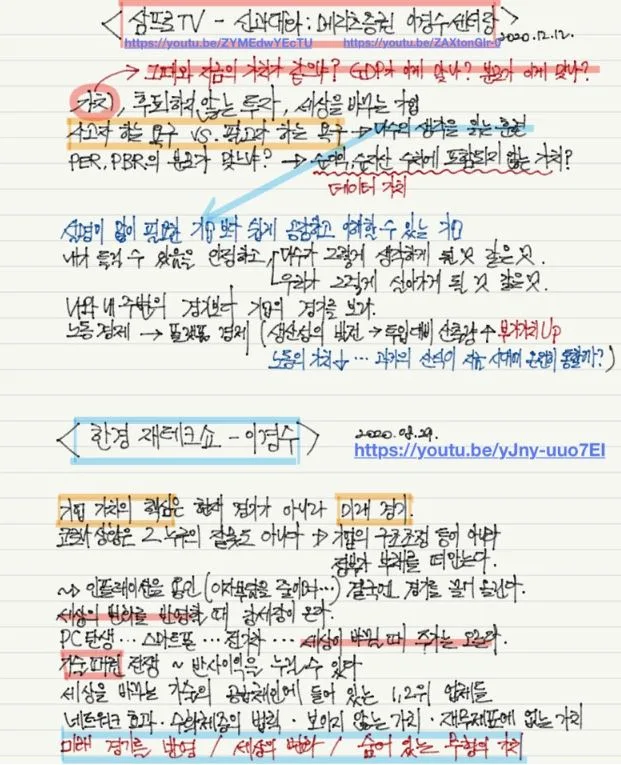 <삼프로TV - 신과대화 : 메리츠증권 이경수센터장>
https://youtu.be/ZYMEdwYEcTU https://youtu.be/ZAXtonGlr-0 2020.12.12.
그때와 지금의 가치가 같으냐? GDP가 이게 맞나? 분모가 이게 맞나?
가치, 후회하지 않는 투자, 세상을 바꾸는 기업
사고자 하는 욕구 VS. 팔고자 하는 욕구 → 다수의 생각을 읽는 훈련
PER, PBR의 분모가 맞느냐? → 순이익, 순자산 수치에 포함되지 않는 가치?
데이터 가치
설명이 많이 필요한 기업보다 쉽게 공감하고 이해할 수 있는 기업
내가 틀릴 수 있음을 인정하고 다수가 그렇게 생각하게 될 것 같은 것.
우리가 그렇게 살아가게 될 것 같은 것.
나와 내 주변의 경기보다 기업의 경기를 보라.
노동 경제 → 플랫폼 경제 (생산성의 발전 → 투입 대비 산출량 ↑ 부가가치 up
노동의 가치↓ … 과거의 산식이 지금 시대에 온전히 통할까?)
<환경 재테크쇼 - 이경수> 2020.08.29.
https://youtu.be/yJny-uuo7EI
기업 가치의 핵심은 현재 경기가 아니라 미래 경기.
코로나 상황은 그 누구의 잘못도 아니다 → 기업의 구조조정 등이 아니라
정부가 부채를 떠안는다.
~> 인플레이션을 용인 (이자부담을 줄이며…) 결국에 경기를 끌어 올린다.
세상의 변화를 반영할 때 강세장이 온다.
PC탄생 … 스마트폰 … 전기차 … 세상이 바뀔 때 주가는 오른다.
기술패권 전쟁 ~ 반사이익을 누릴 수 있다
세상을 바꾸는 기술의 공급체인에 들어 있는 1, 2위 업체들
네트워크 효과 · 수확체증의 법칙 · 보이지 않는 가치 · 재무제표에 없는 가치
미래 경기를 반영 / 세상의 변화 / 숨어 있는 무형의 가치